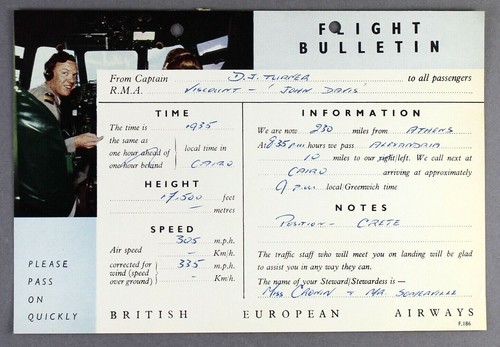 FLIGHT
BULLETIN
From Captain D.J. TURNER to all passengers
R.M.A. VISCOUNT - 'JOHN DAVIS'
TIME
The time is 1935
the same as
one hour ahead of
one hour behind
local time in
CAIRO
HEIGHT
17,500 feet
— metres
SPEED
Air speed
305 m.p.h.
— Km/h.
corrected for
wind (speed
over ground)
335 m.p.h.
— Km/h.
INFORMATION
We are now 230 miles from ATHENS
At 835 P.M. hours we pass ALEXANDRIA
10 miles to our right/left. We call next at
CAIRO arriving at approximately
9 P.M. local/Greenwich time
NOTES
POSITION - CRETE
The traffic staff who will meet you on landing will be glad
to assist you in any way they can.
The name of your Steward/Stewardess is —
MISS CRONIN + MR. SOMERVILLE
PLEASE
PASS
ON
QUICKLY
BRITISH EUROPEAN AIRWAYS
F.186